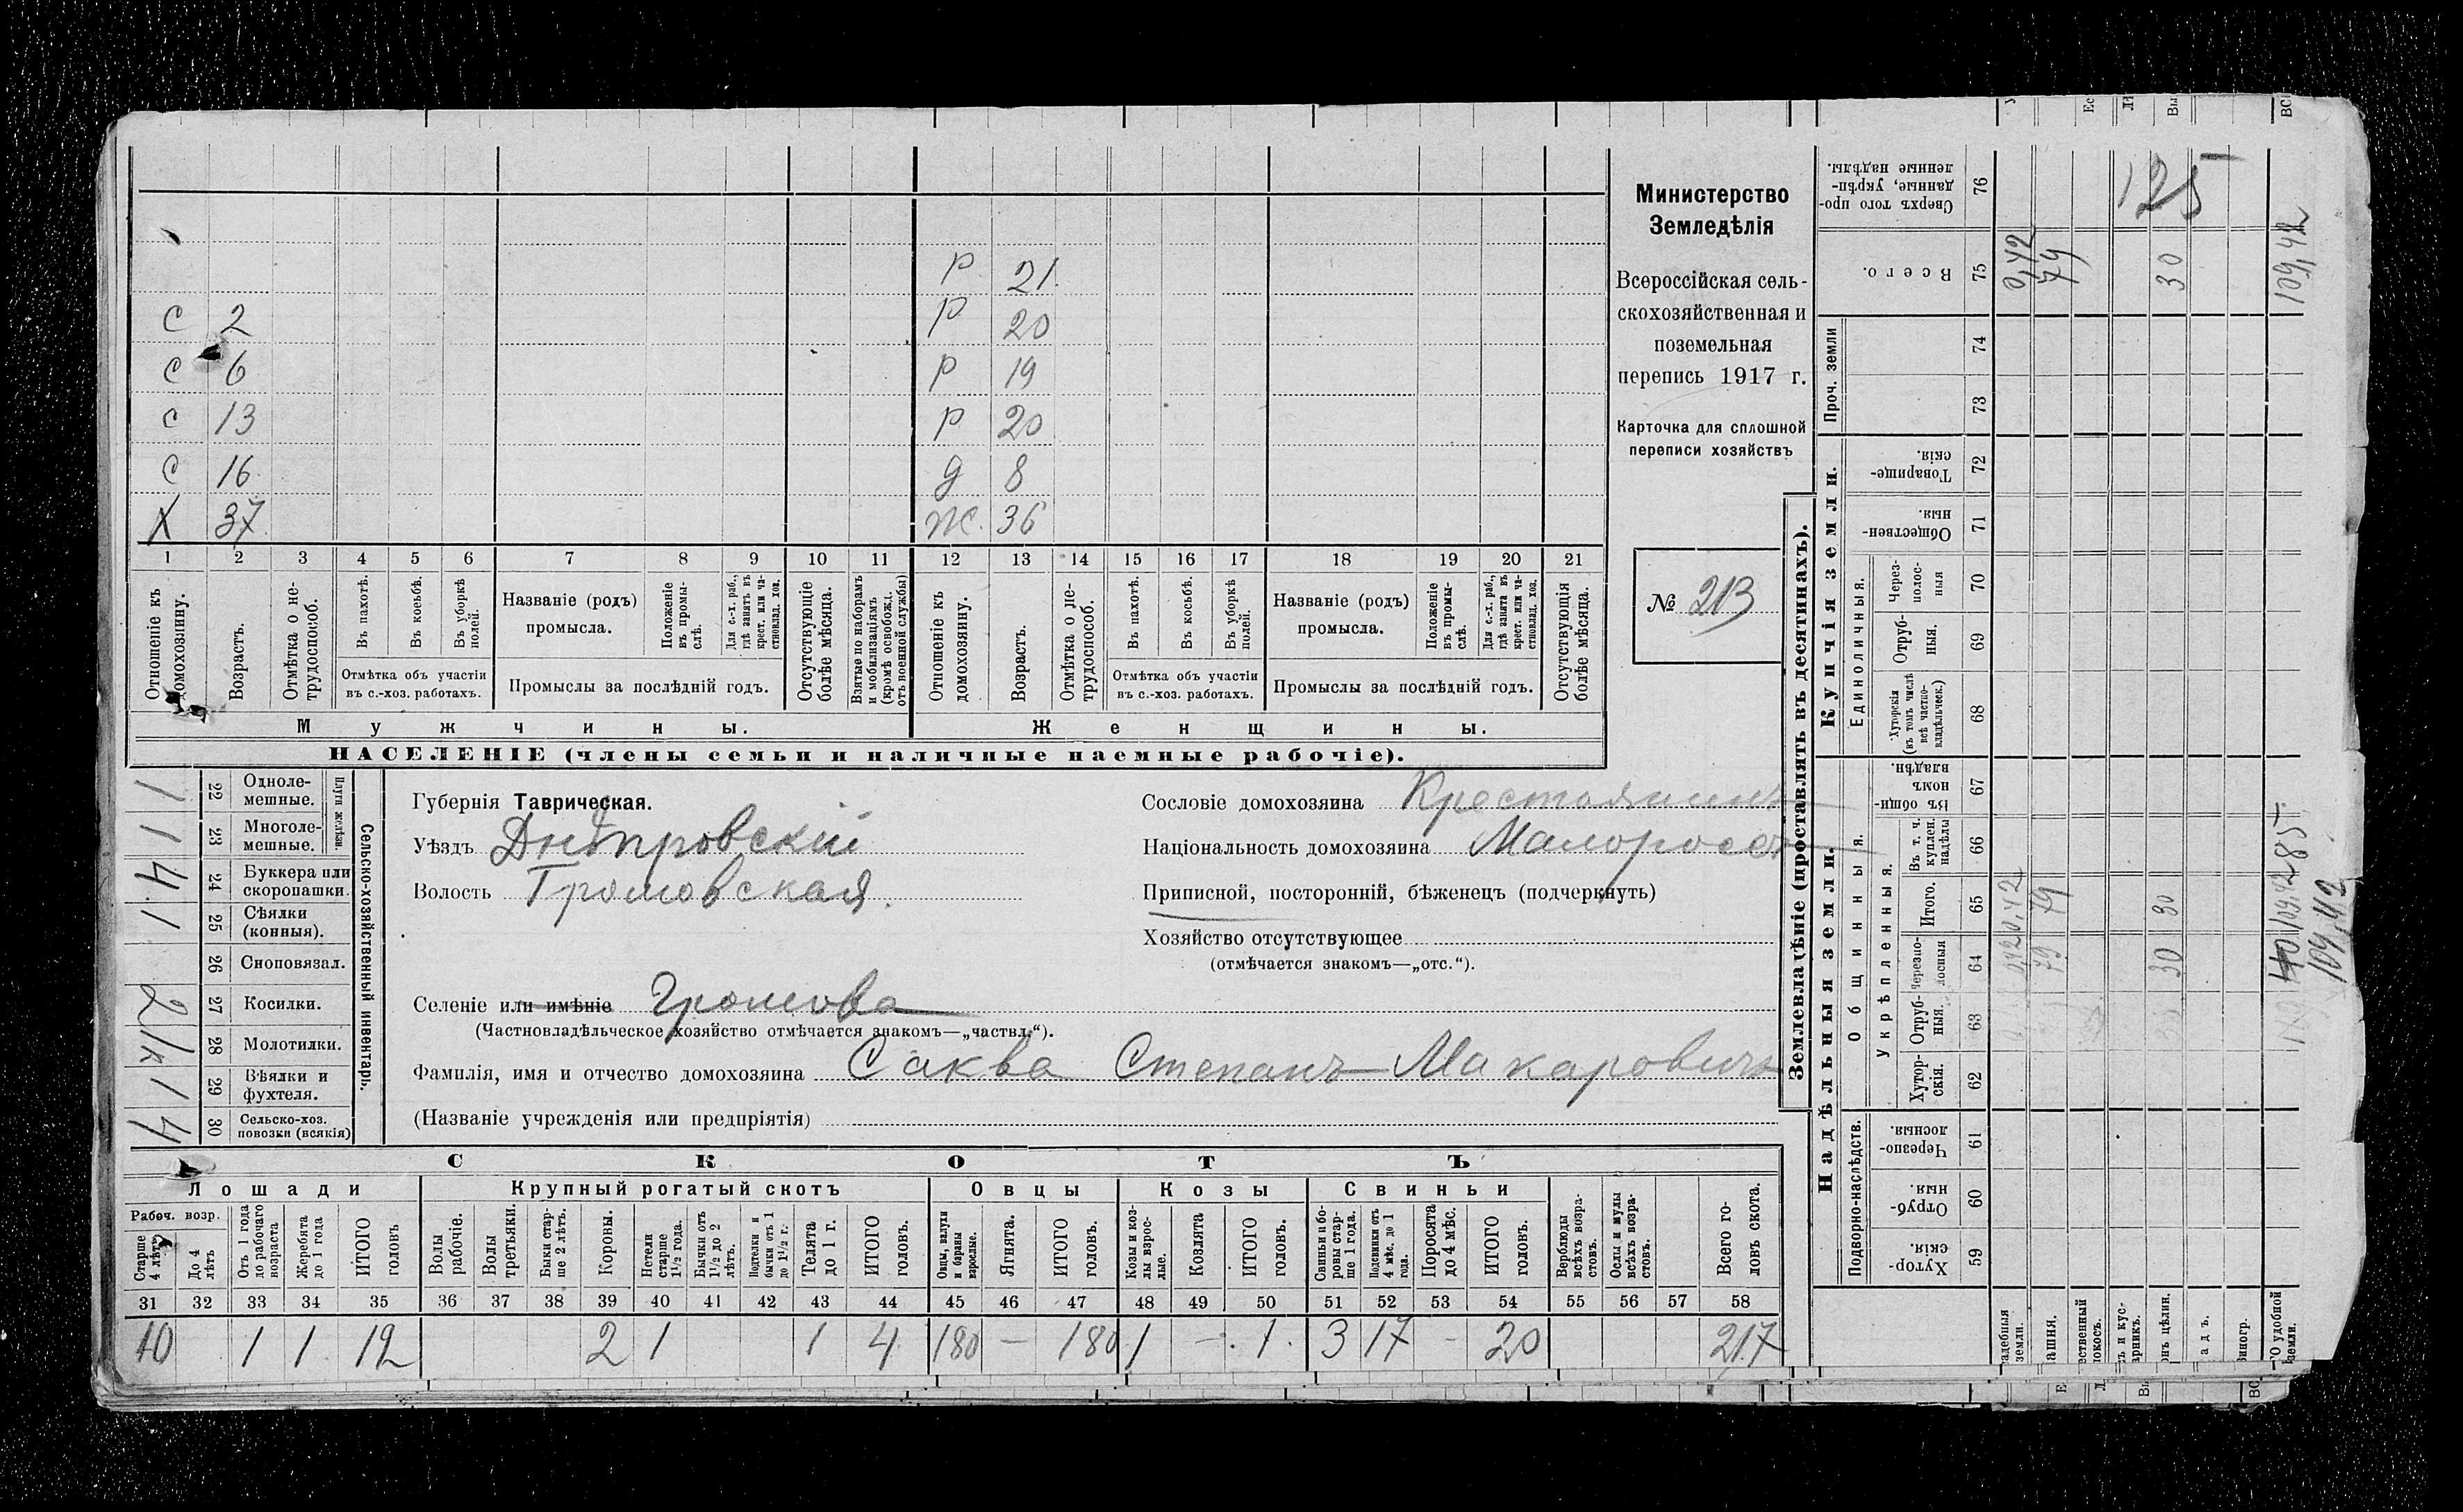 Министерство
Земледѣлія
Всероссійская сель-
скохозяйственная и
поземельная
перепись 1917 г.
Карточка для сплошной
переписи хозяйствъ
№ 213
Р 21.
С 2 Р 20
С 6 Р 19
С 13 Р 20
С 16 д 8
Х 37 Ж. 36
1 2 3 4 5 6 7 8 9 10 11 12 13 14 15 16 17 18 19 20 21
Отношеніе къ домохозяину.
Возрастъ.
Отмѣтка о не-трудоспособ.
Въ пахотѣ.
Въ косьбѣ.
Въ уборкѣ полей.
Отмѣтка объ участіи
въ с.-хоз. работахъ.
Названіе (родъ)
промысла.
Положеніе въ промы-слѣ.
Для с.-х. раб., гдѣ занятъ въ крест. или ча-стновлад. хоз.
Промыслы за послѣдній годъ.
Отсутствующіе болѣе мѣсяца.
Взятые по наборамъ и мобилизаціямъ (кромѣ освобожд. отъ военной службы)
Отношеніе къ домохозяину.
Возрастъ.
Отмѣтка о не-трудоспособ.
Въ пахотѣ.
Въ косьбѣ.
Въ уборкѣ полей.
Отмѣтка объ участіи
въ с.-хоз. работахъ.
Названіе (родъ)
промысла.
Положеніе въ промы-слѣ.
Для с.-х. раб., гдѣ занята въ крест. или ча-стновлад. хоз.
Промыслы за послѣдній годъ.
Отсутствующія болѣе мѣсяца.
Мужчины. Женщины.
НАСЕЛЕНІЕ (члены семьи и наличные наемные рабочіе).
Сельско-хозяйственный инвентарь.
Плуги желѣзн.
1 22 Одноле-мешные.
1 23 Многоле-мешные.
4 24 Буккера или скоропашки.
1 25 Сѣялки (конныя).
26 Сноповязал.
2 27 Косилки.
1/к 28 Молотилки.
1 29 Вѣялки и фухтеля.
4 30 Сельско-хоз. повозки (всякія)
Губернія Таврическая.
Уѣздъ Днѣпровскій
Волость Громовская.
Селеніе или имѣніе Громова
(Частновладѣльческое хозяйство отмѣчается знакомъ—„частвл.“).
Фамилія, имя и отчество домохозяина Саква Степанъ Макаровичъ
(Названіе учрежденія или предпріятія)
Сословіе домохозяина Крестьянинъ
Національность домохозяина Малоросс
Приписной, посторонній, бѣженецъ (подчеркнуть)
Хозяйство отсутствующее
(отмѣчается знакомъ—„отс.“).
СКОТЪ
Лошади Крупный рогатый скотъ Овцы Козы Свиньи
Рабоч. возр.
Старше 4 лѣтъ
До 4 лѣтъ
Отъ 1 года до рабочаго возраста
Жеребята до 1 года
ИТОГО головъ
Волы рабочіе.
Волы третьяки.
Быки стар-ше 2 лѣтъ.
Коровы.
Нетели старше 1½ года.
Бычки отъ 1½ до 2 лѣтъ.
Подтелки и бычки отъ 1 до 1½ г.
Телята до 1 г.
ИТОГО головъ.
Овцы, валухи и бараны взрослые.
Ягнята.
ИТОГО головъ.
Козы и коз-лы взрос-лые.
Козлята
ИТОГО головъ.
Свиньи и бо-ровы стар-ше 1 года.
Подсвинки отъ 4 мѣс. до 1 года.
Поросята до 4 мѣс.
ИТОГО головъ.
Верблюды всѣхъ возра-стовъ.
Ослы и мулы всѣхъ возра-стовъ.
Всего го-ловъ скота.
31 32 33 34 35 36 37 38 39 40 41 42 43 44 45 46 47 48 49 50 51 52 53 54 55 56 57 58
10 1 1 12 2 1 1 4 180 — 180 1 — 1. 3 17 - 20 217
Землевладѣніе (проставлять въ десятинахъ).
Надѣльныя земли. Купчія земли. Проч. земли
Подворно-наслѣдств.
Общинныя.
Укрѣпленныя.
Единоличныя.
59 Хутор-скія.
60 Отруб-ныя.
61 Черезпо-лосныя.
62 Хутор-скія.
63 Отруб-ныя.
64 Черезпо-лосныя
65 Итого.
66 Въ т. ч. куплен. надѣлы
67 Въ общин-номъ владѣн.
68 Хуторскія (въ томъ числѣ всѣ частно-владѣльческ.)
69 Отруб-ныя.
70 Через-полос-ныя
71 Обществен-ныя.
72 Товарище-скія.
73
74
75 Всего.
76 Сверхъ того про-данные, укрѣп-ленные надѣлы.
0,42 79 30 109,42
125
0,42 79 30
79 30
109,42
285
109,42